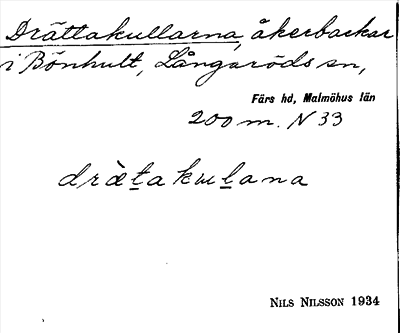 Drättakullarna, åkerbackar
i Bönhult, Långaröds sn,
Färs hd, Malmöhus län
200 m. N 33
drætakuḷana
NILS NILSSON 1934